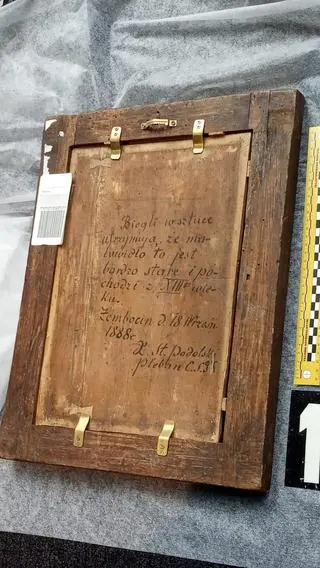 Biegli w sztuce
utrzymują, że ma-
lowidło to jest
bardzo stare i po-
chodzi z XIIIo wie-
ku.
Zembocin d. 18 Wrześn
1888r.
X. St. Podolski
1